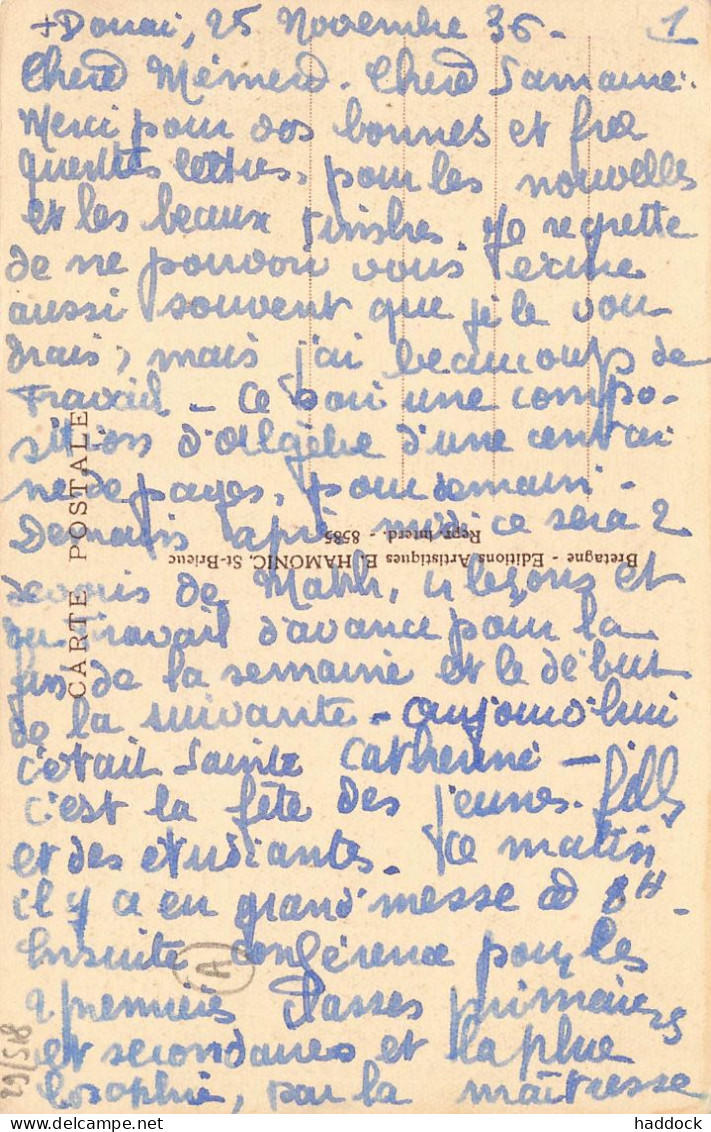 + Douai, 25 Novembre 36 - 1
Chere Mémere. Chere
Merci pour vos bonnes et fré
quentes lettres, pour les nouvelles
et les beaux timbres. Je regrette
de ne pouvoir vous écrire
aussi souvent que je le vou
drais, mais j'ai beaucoup de
Travail - Ce soir une compo-
sition d'Algèbre d'une centai
ne de pages, pour demain -
Demain après midi ce sera 2
devoirs de Math, 4 leçons et
du travail d'avance pour la
fin de la semaine et le début
de la suivante - aujourd'hui
c'était Sainte Catherine -
c'est la fête des jeunes-filles
et des étudiantes - Ce matin
il y a eu grand'messe à 8H -
Ensuite conférence pour les
2 premières classes primaires
et secondaires et la phie
losophie, par la maîtresse
CARTE POSTALE
Bretagne - Editions Artistiques E. HAMONIC, St-Brieuc
Repr. Interd. - 8585
A
29/518
haddock